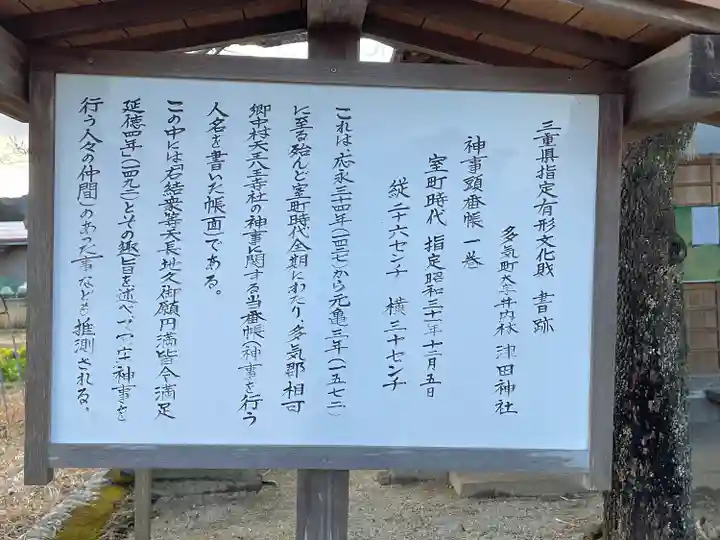 三重県指定有形文化財 書跡
多気町大字井内林 津田神社
神事頭番帳 一巻
室町時代 指定昭和三十一年十二月五日
縦 二十六センチ 横 三十センチ
これは、応永三十四年(一四二七)から元亀三年(一五七二)
に至る殆んど室町時代全期にわたり、多気郡相可
郷中村天王八王寺社の神事に関する当番帳(神事を行う
人名を書いた帳面)である。
この中には「右結衆等天長地久御願円満皆令満足
延徳四年」(一四九二)とその趣旨を述べてつ(神事を
行う人々の仲間)のあった事なども推測される。